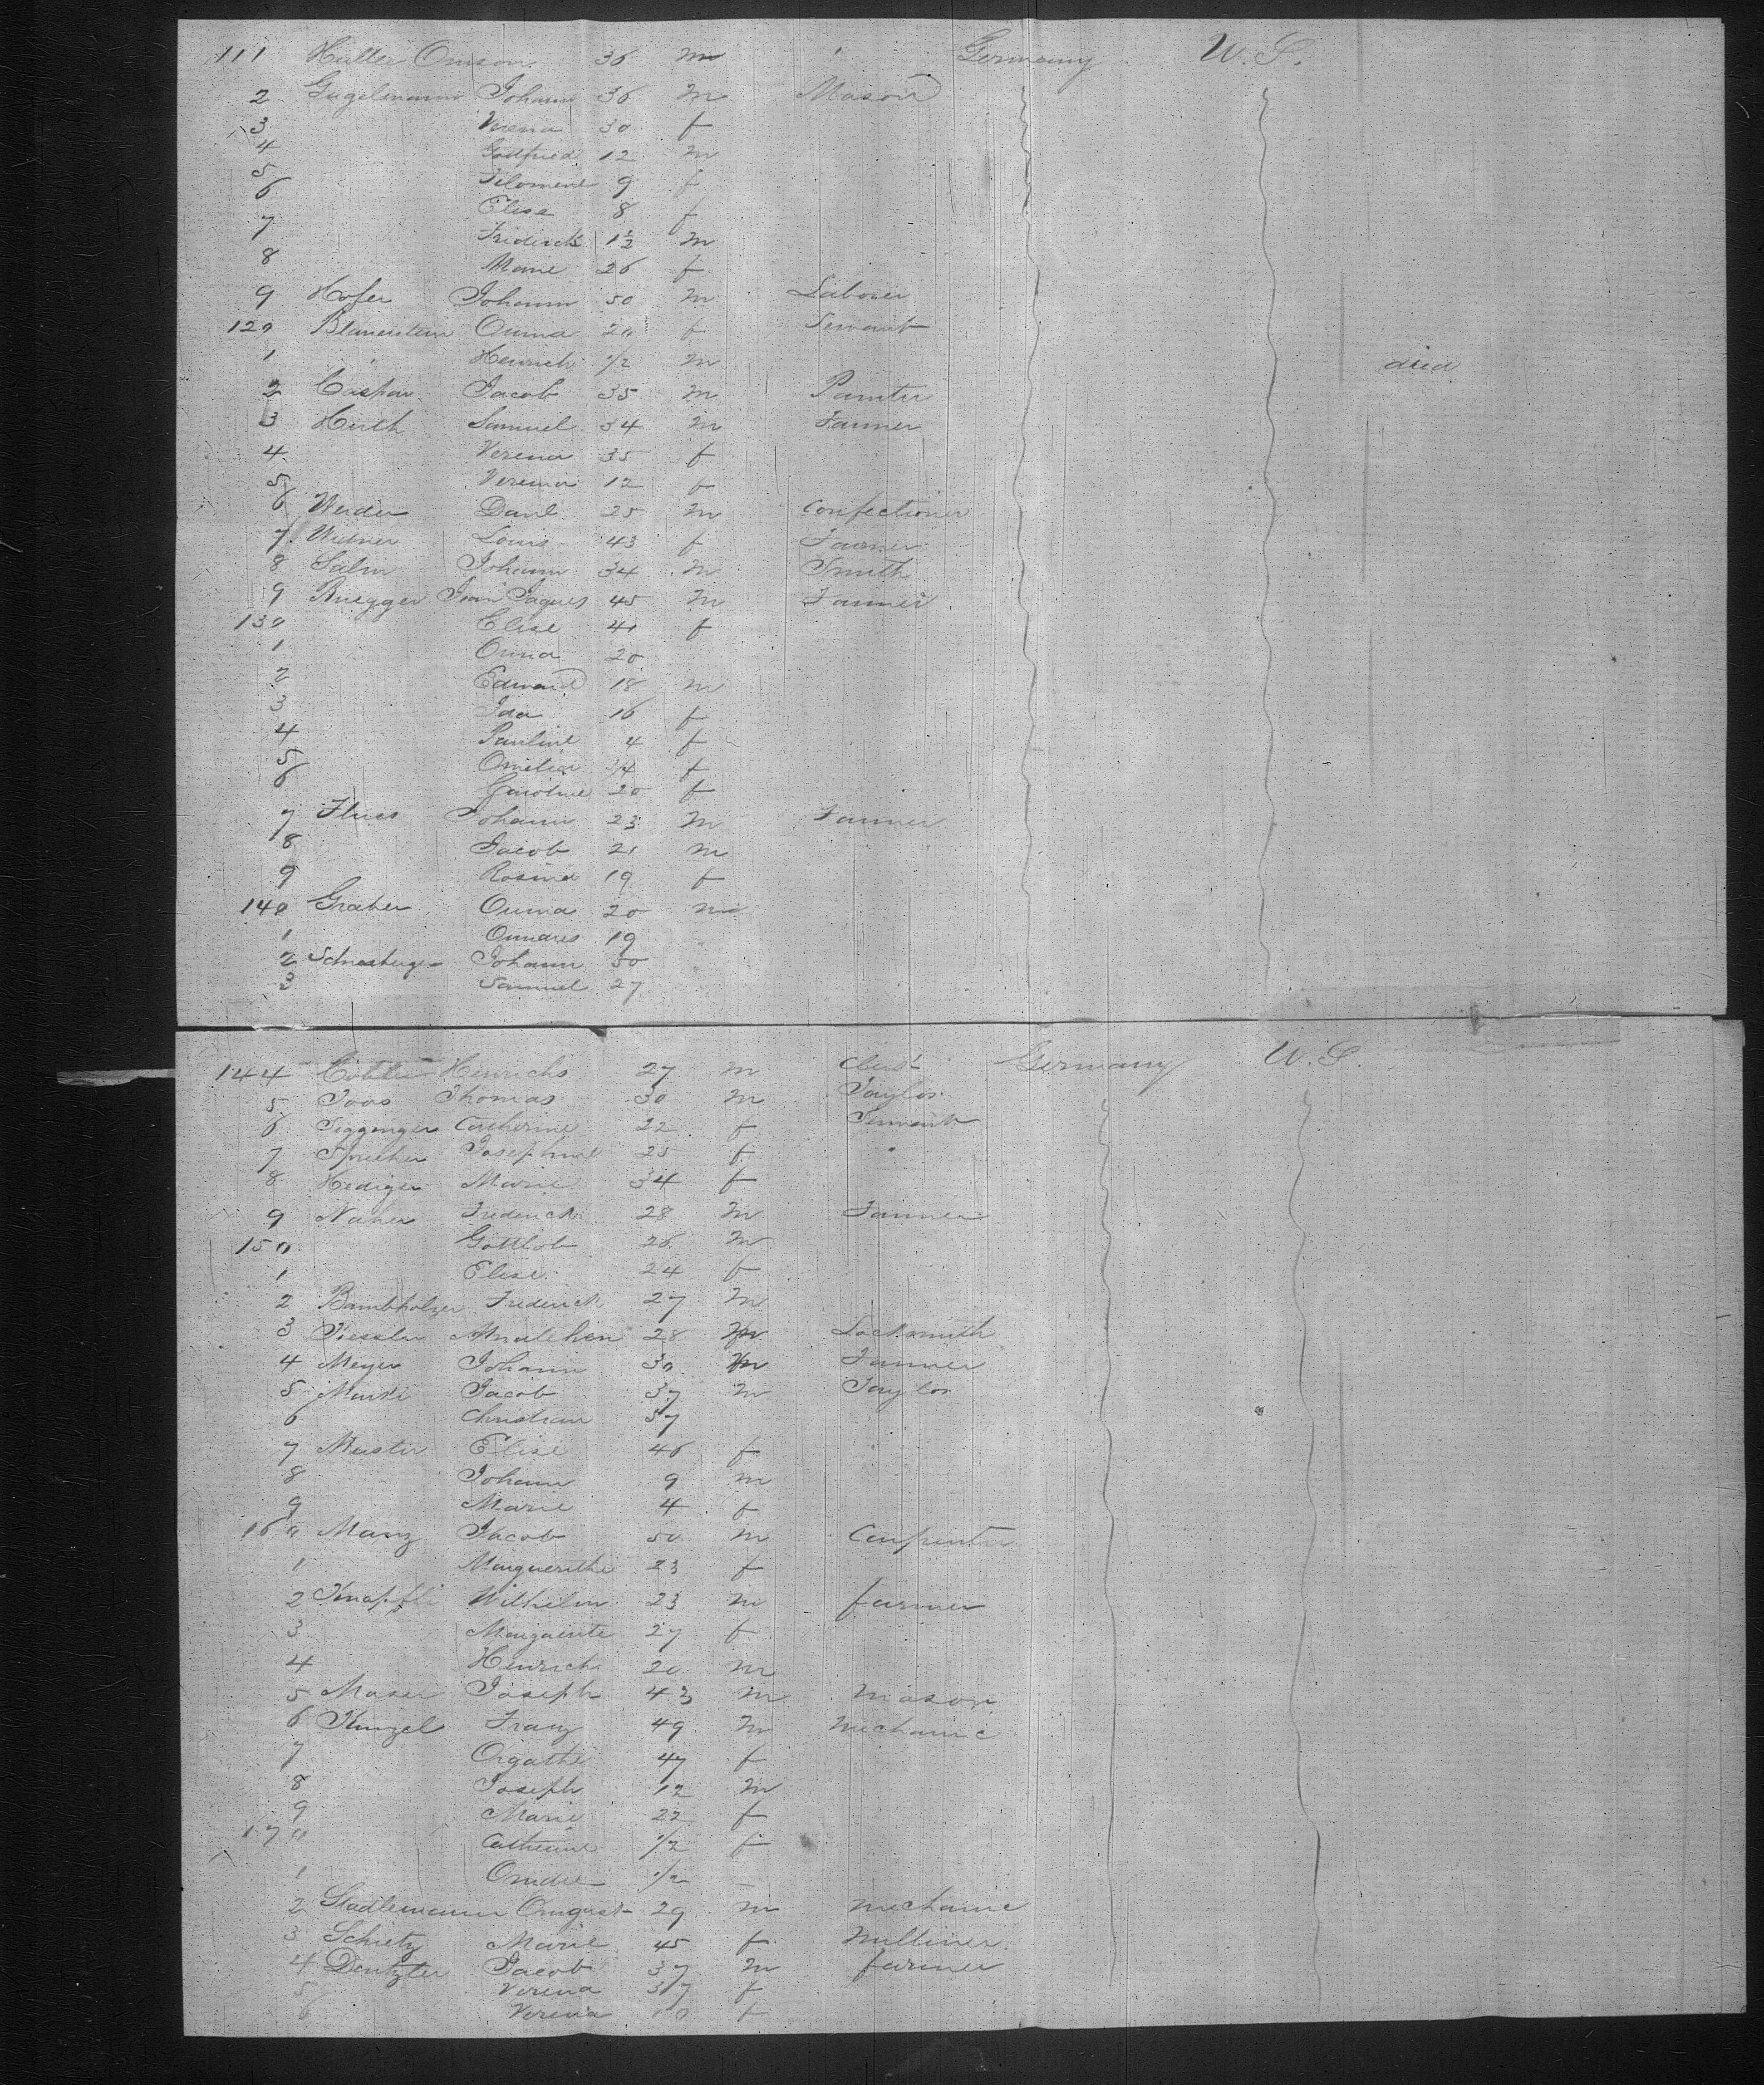 111 Huller Omson 36 m Germany U.S.
2 Gugelmann Johann 36 m Mason
3 Verena 30 f
4 Gottfried 12 m
5 Filomene 9 f
6 Elise 8 f
7 Friderick 1½ m
8 Marie 26 f
9 Hofer Johann 50 m Laborer
120 Blauenstein Omma 20 f Servant
1 " Henrich 1/2 m died
2 Caspar Jacob 35 m Painter
3 Hirth Samuel 34 m Farmer
4 Verena 35 f
5 Verena 12 f
6 Werder Danl 25 m Confectioner
7 Widmer Louis 43 f Farmer
8 Salm Johann 34 m Smith
9 Bruegger Jean Jaques 45 m Farmer
130 Elise 41 f
1 Onna 20
2 Edward 18 m
3 Ida 16 f
4 Pauline 4 f
5 Omelia 3/4 f
6 Caroline 20 f
7 Flues Johann 23 m Farmer
8 Jacob 21 m
9 Rosina 19 f
140 Graber Onna 20 m
1 Onndres 19
2 Schneeberger Johann 50
3 Samuel 27
144 Henrich 27 m Clerk Germany U.S.
5 Joos Thomas 30 m Taylor
6 Siggenger Catherine 22 f Servant
7 Sprecher Josephine 25 f "
8 Hediger Marie 34 f
9 Naher Frederick 28 m Farmer
150 Gottlob 26 m
1 Elise 24 f
2 Bombholzer Frederick 27 m
3 28 m Locksmith
4 Meyer Johann 30 m Farmer
5 Marki Jacob 37 m Taylor
6 Christian 57
7 Meister Elise 46 f
8 Johann 9 m
9 Marie 4 f
160 Manz Jacob 50 m Carpenter
1 Marguerithe 23 f
2 Knapfli Wilhelm 23 m farmer
3 Marguerite 27 f
4 Henrich 20 m
5 Moser Joseph 43 m mason
6 Kunzel Franz 49 m mechanic
7 Ogathe 47 f
8 Joseph 12 m
9 Marie 22 f
170 Catherine 1/2 f
1 Ondre 1/2
2 Stadlemann Omgust 29 m mechanic
3 Schietz Marie 45 f Milliner
4 Dentzler Jacob 37 m farmer
5 Verena 37 f
6 Verena 10 f